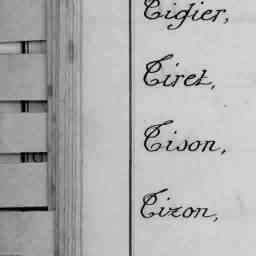 Tigier,
Tiret,
Tison,
Tizon,